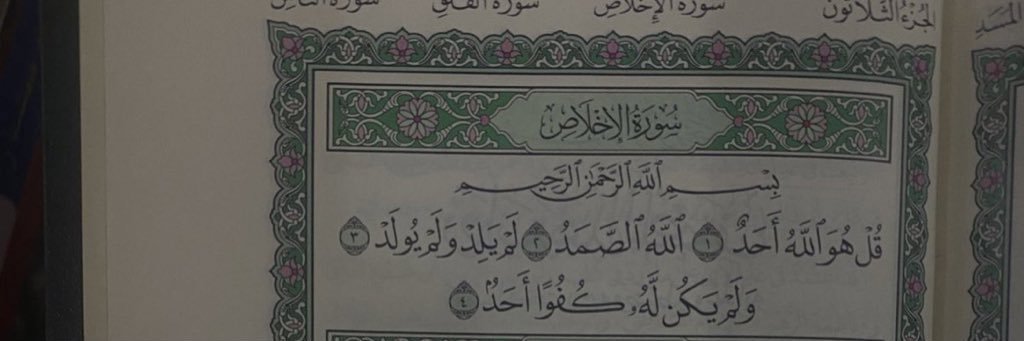 الجزء الثلاثون سورة الإخلاص سورة الفلق سورة الناس
المسد
سُورَةُ الإِخْلَاصِ
بِسْمِ ٱللَّهِ ٱلرَّحْمَٰنِ ٱلرَّحِيمِ
قُلْ هُوَ ٱللَّهُ أَحَدٌ ١ ٱللَّهُ ٱلصَّمَدُ ٢ لَمْ يَلِدْ وَلَمْ يُولَدْ ٣
وَلَمْ يَكُن لَّهُۥ كُفُوًا أَحَدٌۢ ٤